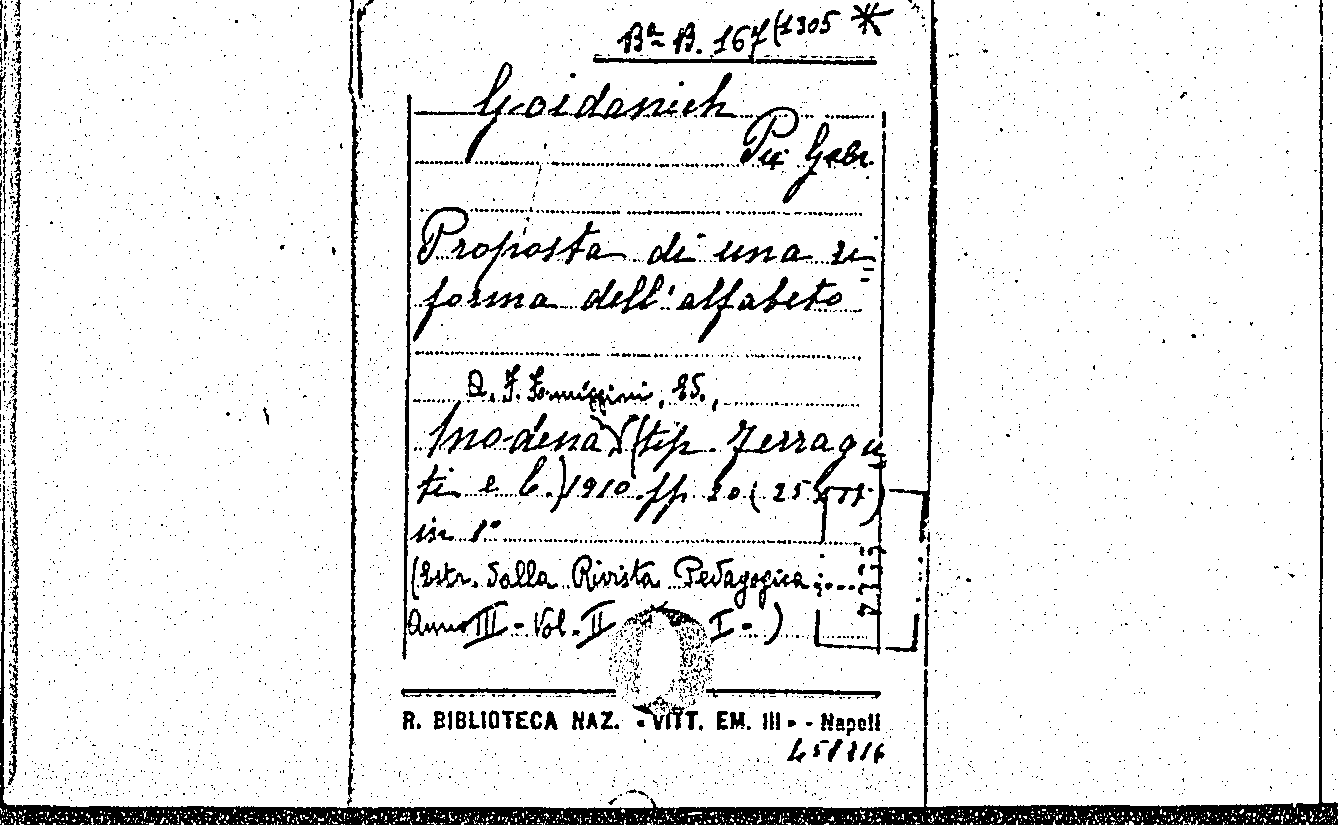 Bª B. 167(1305 *
Goidanich
Pier Gabr.
Proposta di una ri=
forma dell'alfabeto
A. F. Formiggini, Ed.,
Modena (tip. Ferragu=
ti e C.) 1910 pp. 20 (25
in 8°
(Estr. dalla Rivista Pedagogica
Anno III - Vol. II I - )
R. BIBLIOTECA NAZ. - VITT. EM. III - - Napoli